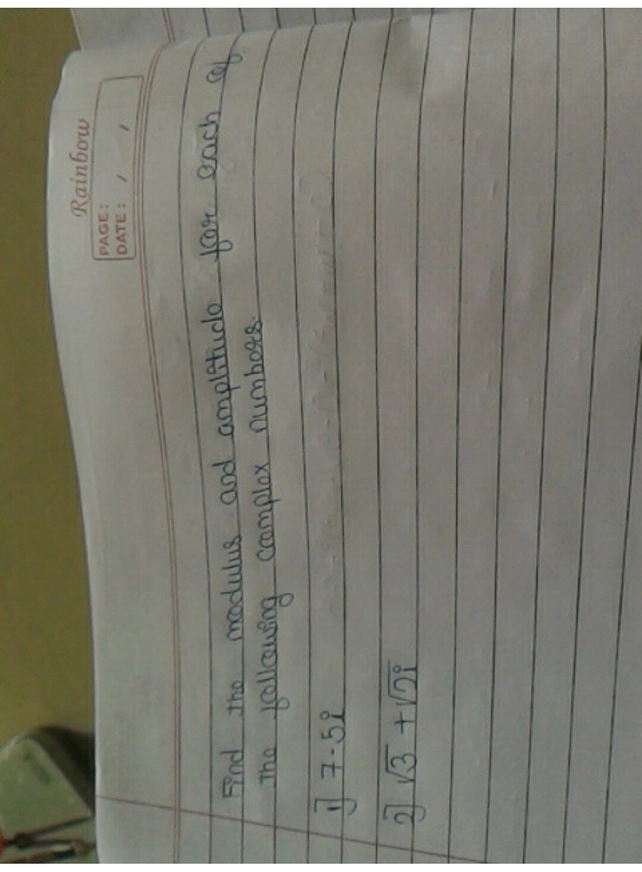 Rainbow
PAGE:
DATE: / /
Find the modulus and amplitude for each of
the following complex numbers.
1] 7-5i
2] √3 + √2i